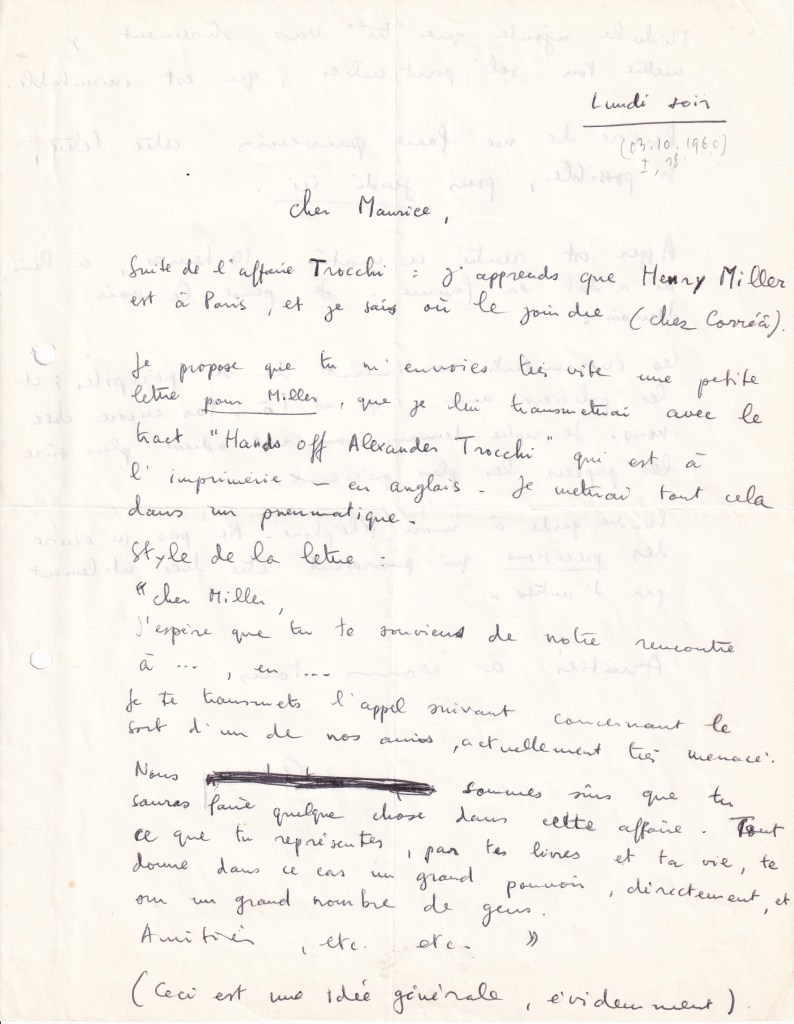 Lundi soir
(03.10.1960)
I, 18
Cher Maurice,
Suite de l'affaire Trocchi : j'apprends que Henry Miller
est à Paris, et je sais où le joindre (chez Corréâ).
Je propose que tu m'envoies très vite une petite
lettre pour Miller, que je lui transmettrai avec le
tract "Hands off Alexander Trocchi" qui est à
l'imprimerie – en anglais. Je mettrai tout cela
dans un pneumatique.
Style de la lettre :
"Cher Miller,
J'espère que tu te souviens de notre rencontre
à ..., en ...
Je te transmets l'appel suivant concernant le
sort d'un de nos amis, actuellement très menacé.
Nous sommes sûrs que tu
sauras faire quelque chose dans cette affaire. Tout
ce que tu représentes, par tes livres et ta vie, te
donne dans ce cas un grand pouvoir, directement, et
sur un grand nombre de gens.
Amitiés, etc. etc. »
(Ceci est une idée générale, évidemment).